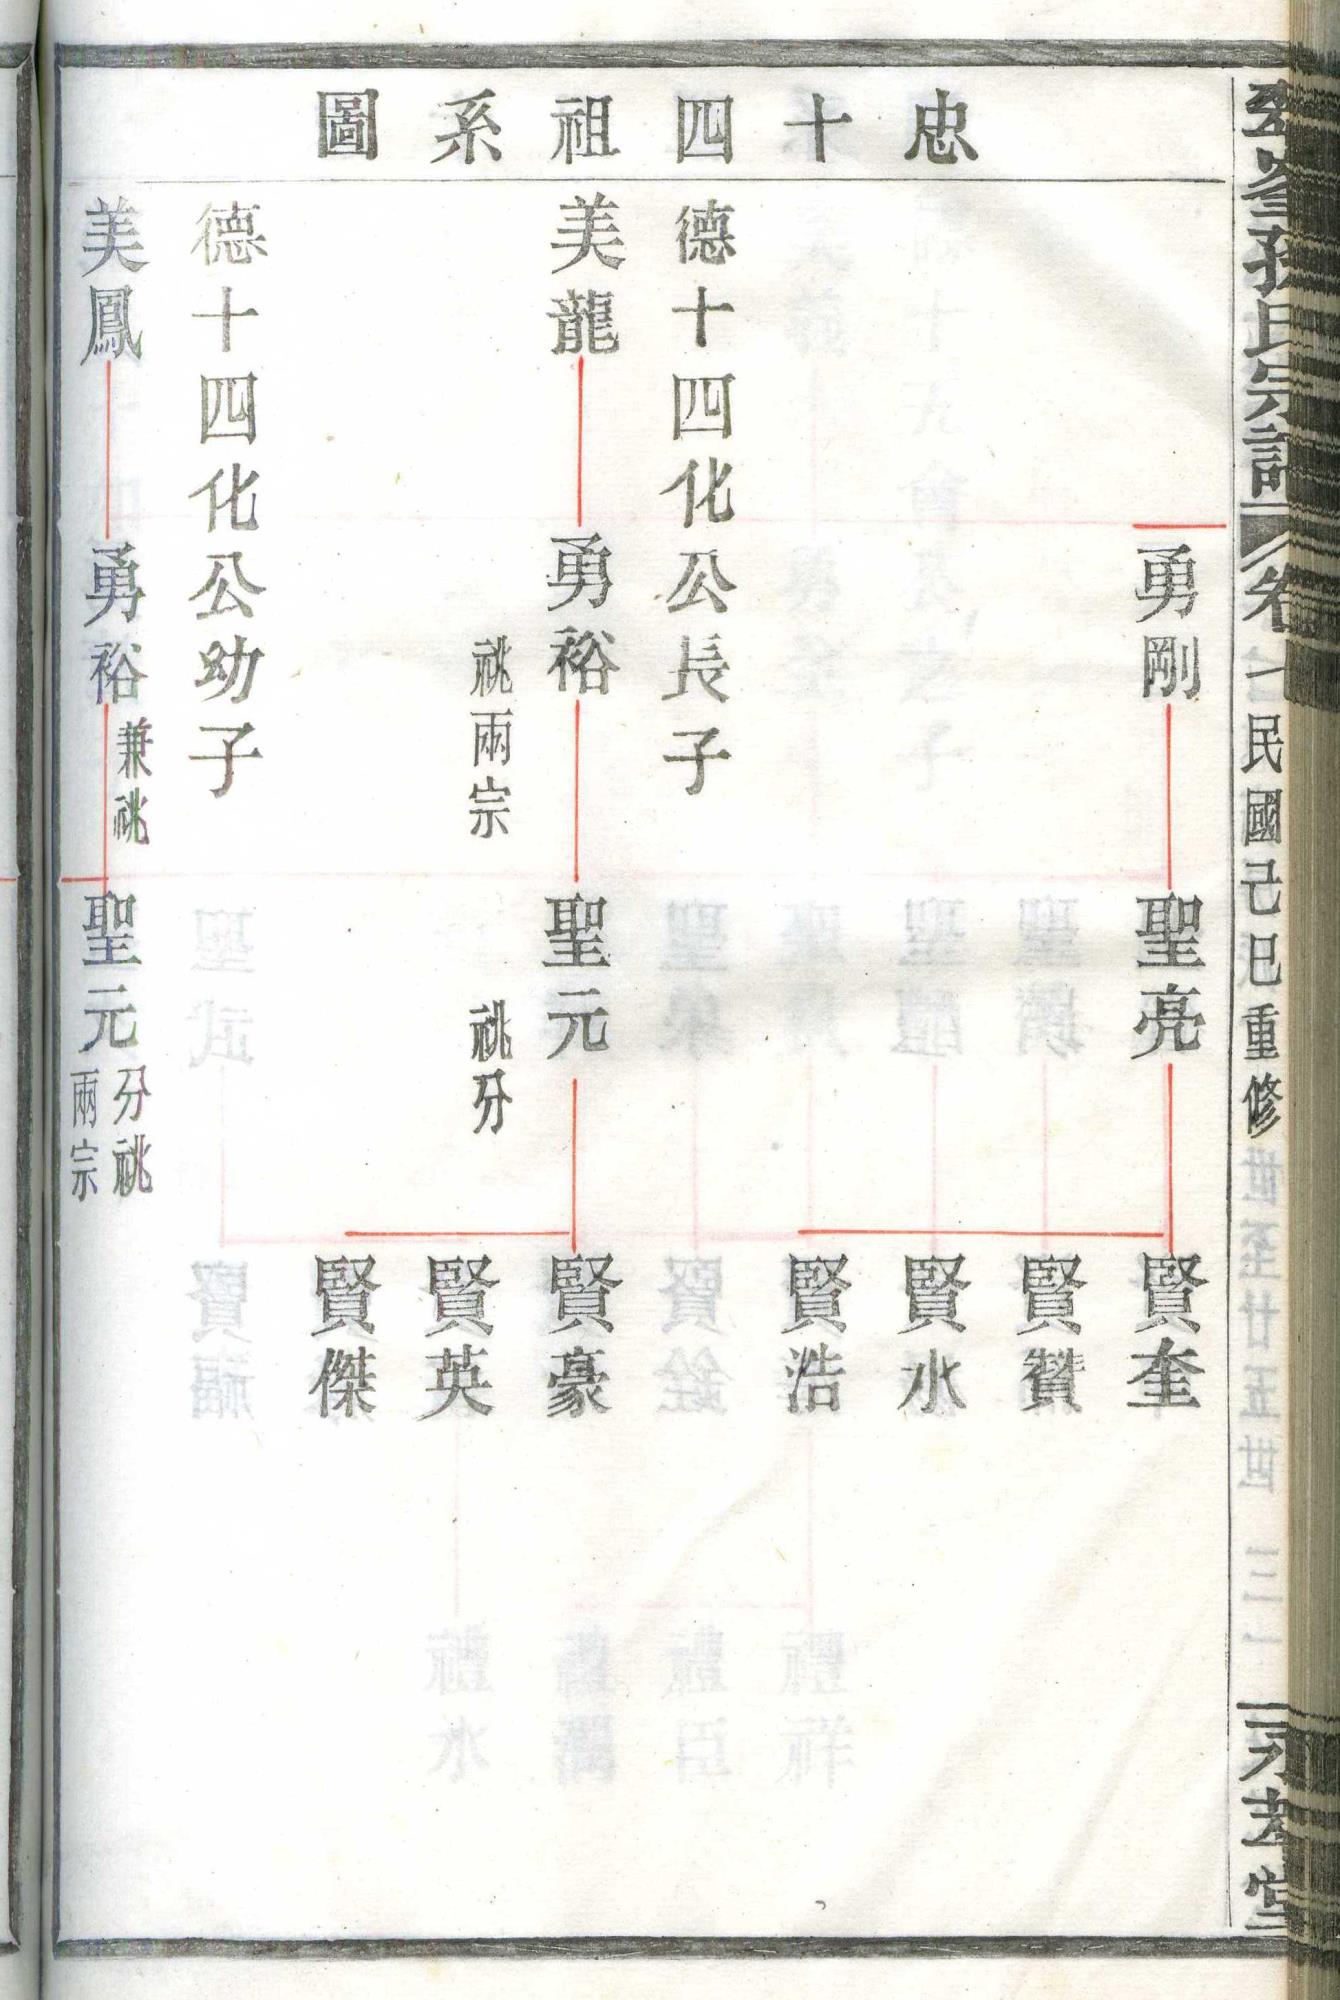 忠十四祖系圖
勇剛
聖亮
賢奎
賢贊
賢水
賢浩
德十四化公長子
美龍
勇裕
祧兩宗
聖元
祧分
賢豪
賢英
賢傑
德十四化公幼子
美鳳
勇裕
兼祧
聖元
分祧
兩宗
孫氏宗譜
卷
民國己巳重修
堂